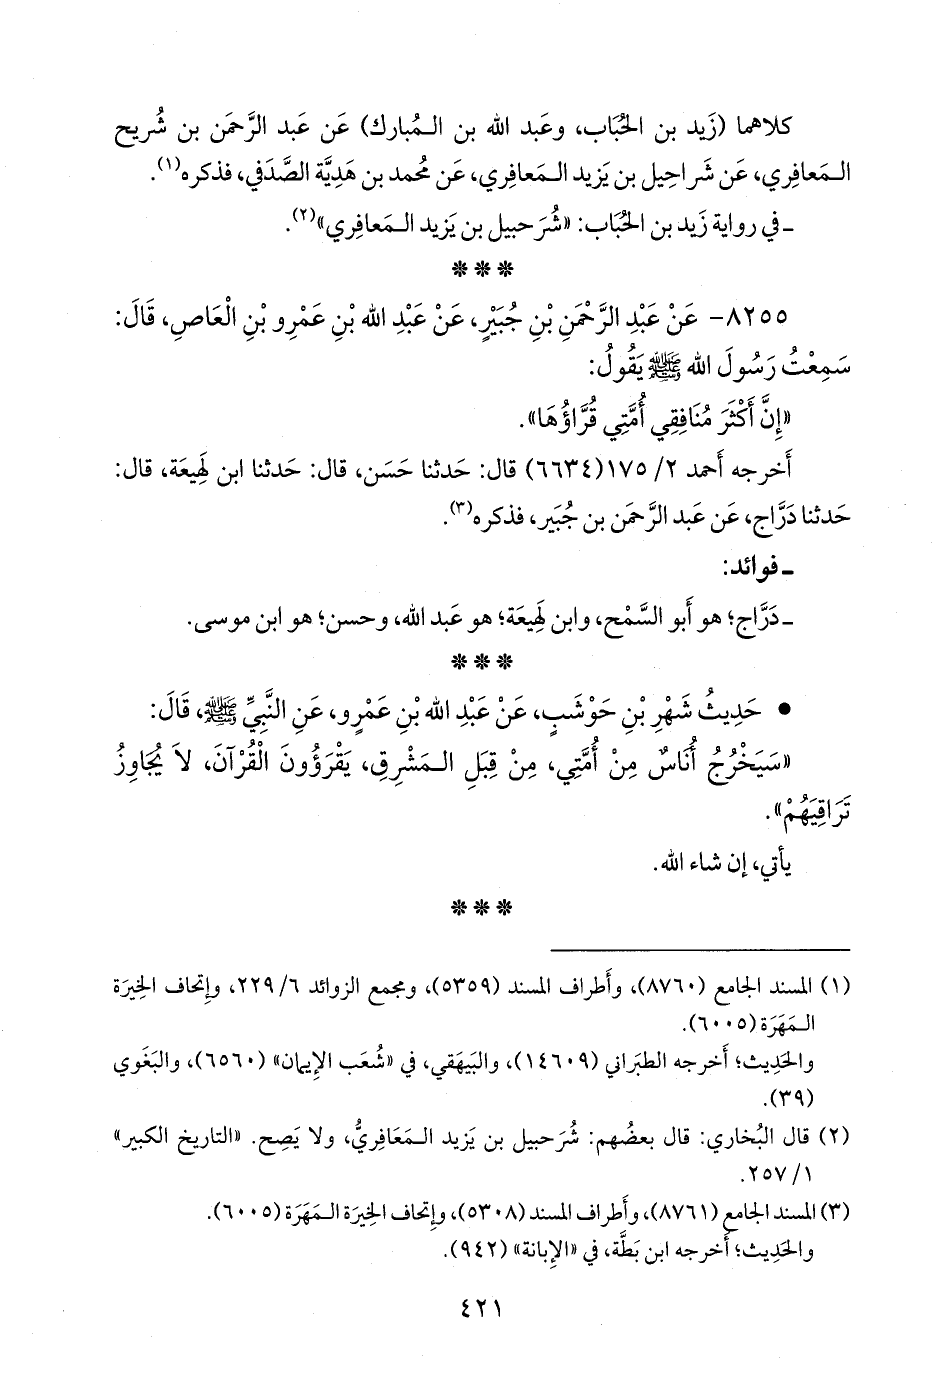 كلاهما (زَيد بن الحُبَاب، وعَبد الله بن الـمُبارك) عَن عَبد الرَّحمَن بن شُريح
الـمَعافِري، عَن شَراحِيل بن يَزيد الـمَعافِري، عَن مُحمد بن هَديَّة الصَّدَفي، فذكره(١).
ـ في رواية زَيد بن الحُبَاب: «شُرَحبيل بن يَزيد الـمَعافِري»(٢).
***
٨٢٥٥- عَنْ عَبْدِ الرَّحْمَنِ بْنِ جُبَيْرٍ، عَنْ عَبْدِ الله بْنِ عَمْرِو بْنِ الْعَاصِ، قَالَ:
سَمِعْتُ رَسُولَ الله ﷺ يَقُولُ:
«إِنَّ أَكْثَرَ مُنَافِقِي أُمَّتِي قُرَّاؤُهَا».
أَخرجه أَحمد ٢/ ١٧٥(٦٦٣٤) قال: حَدثنا حَسَن، قال: حَدثنا ابن لَهِيعَة، قال:
حَدثنا دَرَّاج، عَن عَبد الرَّحمَن بن جُبَير، فذكره(٣).
ـ فوائد:
ـ دَرَّاج؛ هو أَبو السَّمْح، وابن لَهِيعَة؛ هو عَبد الله، وحسن؛ هو ابن موسى.
***
● حَدِيثُ شَهْرِ بْنِ حَوْشَبٍ، عَنْ عَبْدِ الله بْنِ عَمْرٍو، عَنِ النَّبِيِّ ﷺ، قَالَ:
«سَيَخْرُجُ أُنَاسٌ مِنْ أُمَّتِي، مِنْ قِبَلِ الـمَشْرِقِ، يَقْرَؤُونَ الْقُرْآنَ، لاَ يُجَاوِزُ
تَرَاقِيَهُمْ».
يأتي، إن شاء الله.
***
(١) المسند الجامع (٨٧٦٠)، وأَطراف المسند (٥٣٥٩)، ومجمع الزوائد ٦/ ٢٢٩، وإتحاف الخِيرَة
الـمَهَرَة (٦٠٠٥).
والحَدِيث؛ أَخرجه الطبَراني (١٤٦٠٩)، والبَيهَقي، في «شُعَب الإِيمان» (٦٥٦٠)، والبَغَوي
(٣٩).
(٢) قال البُخاري: قال بعضُهم: شُرَحبيل بن يَزيد الـمَعَافِريُّ، ولا يَصِح. «التاريخ الكبير»
١/ ٢٥٧.
(٣) المسند الجامع (٨٧٦١)، وأَطراف المسند (٥٣٠٨)، وإتحاف الخِيرَة الـمَهَرَة (٦٠٠٥).
والحَدِيث؛ أَخرجه ابن بَطَّة، في «الإِبانة» (٩٤٢).
٤٢١